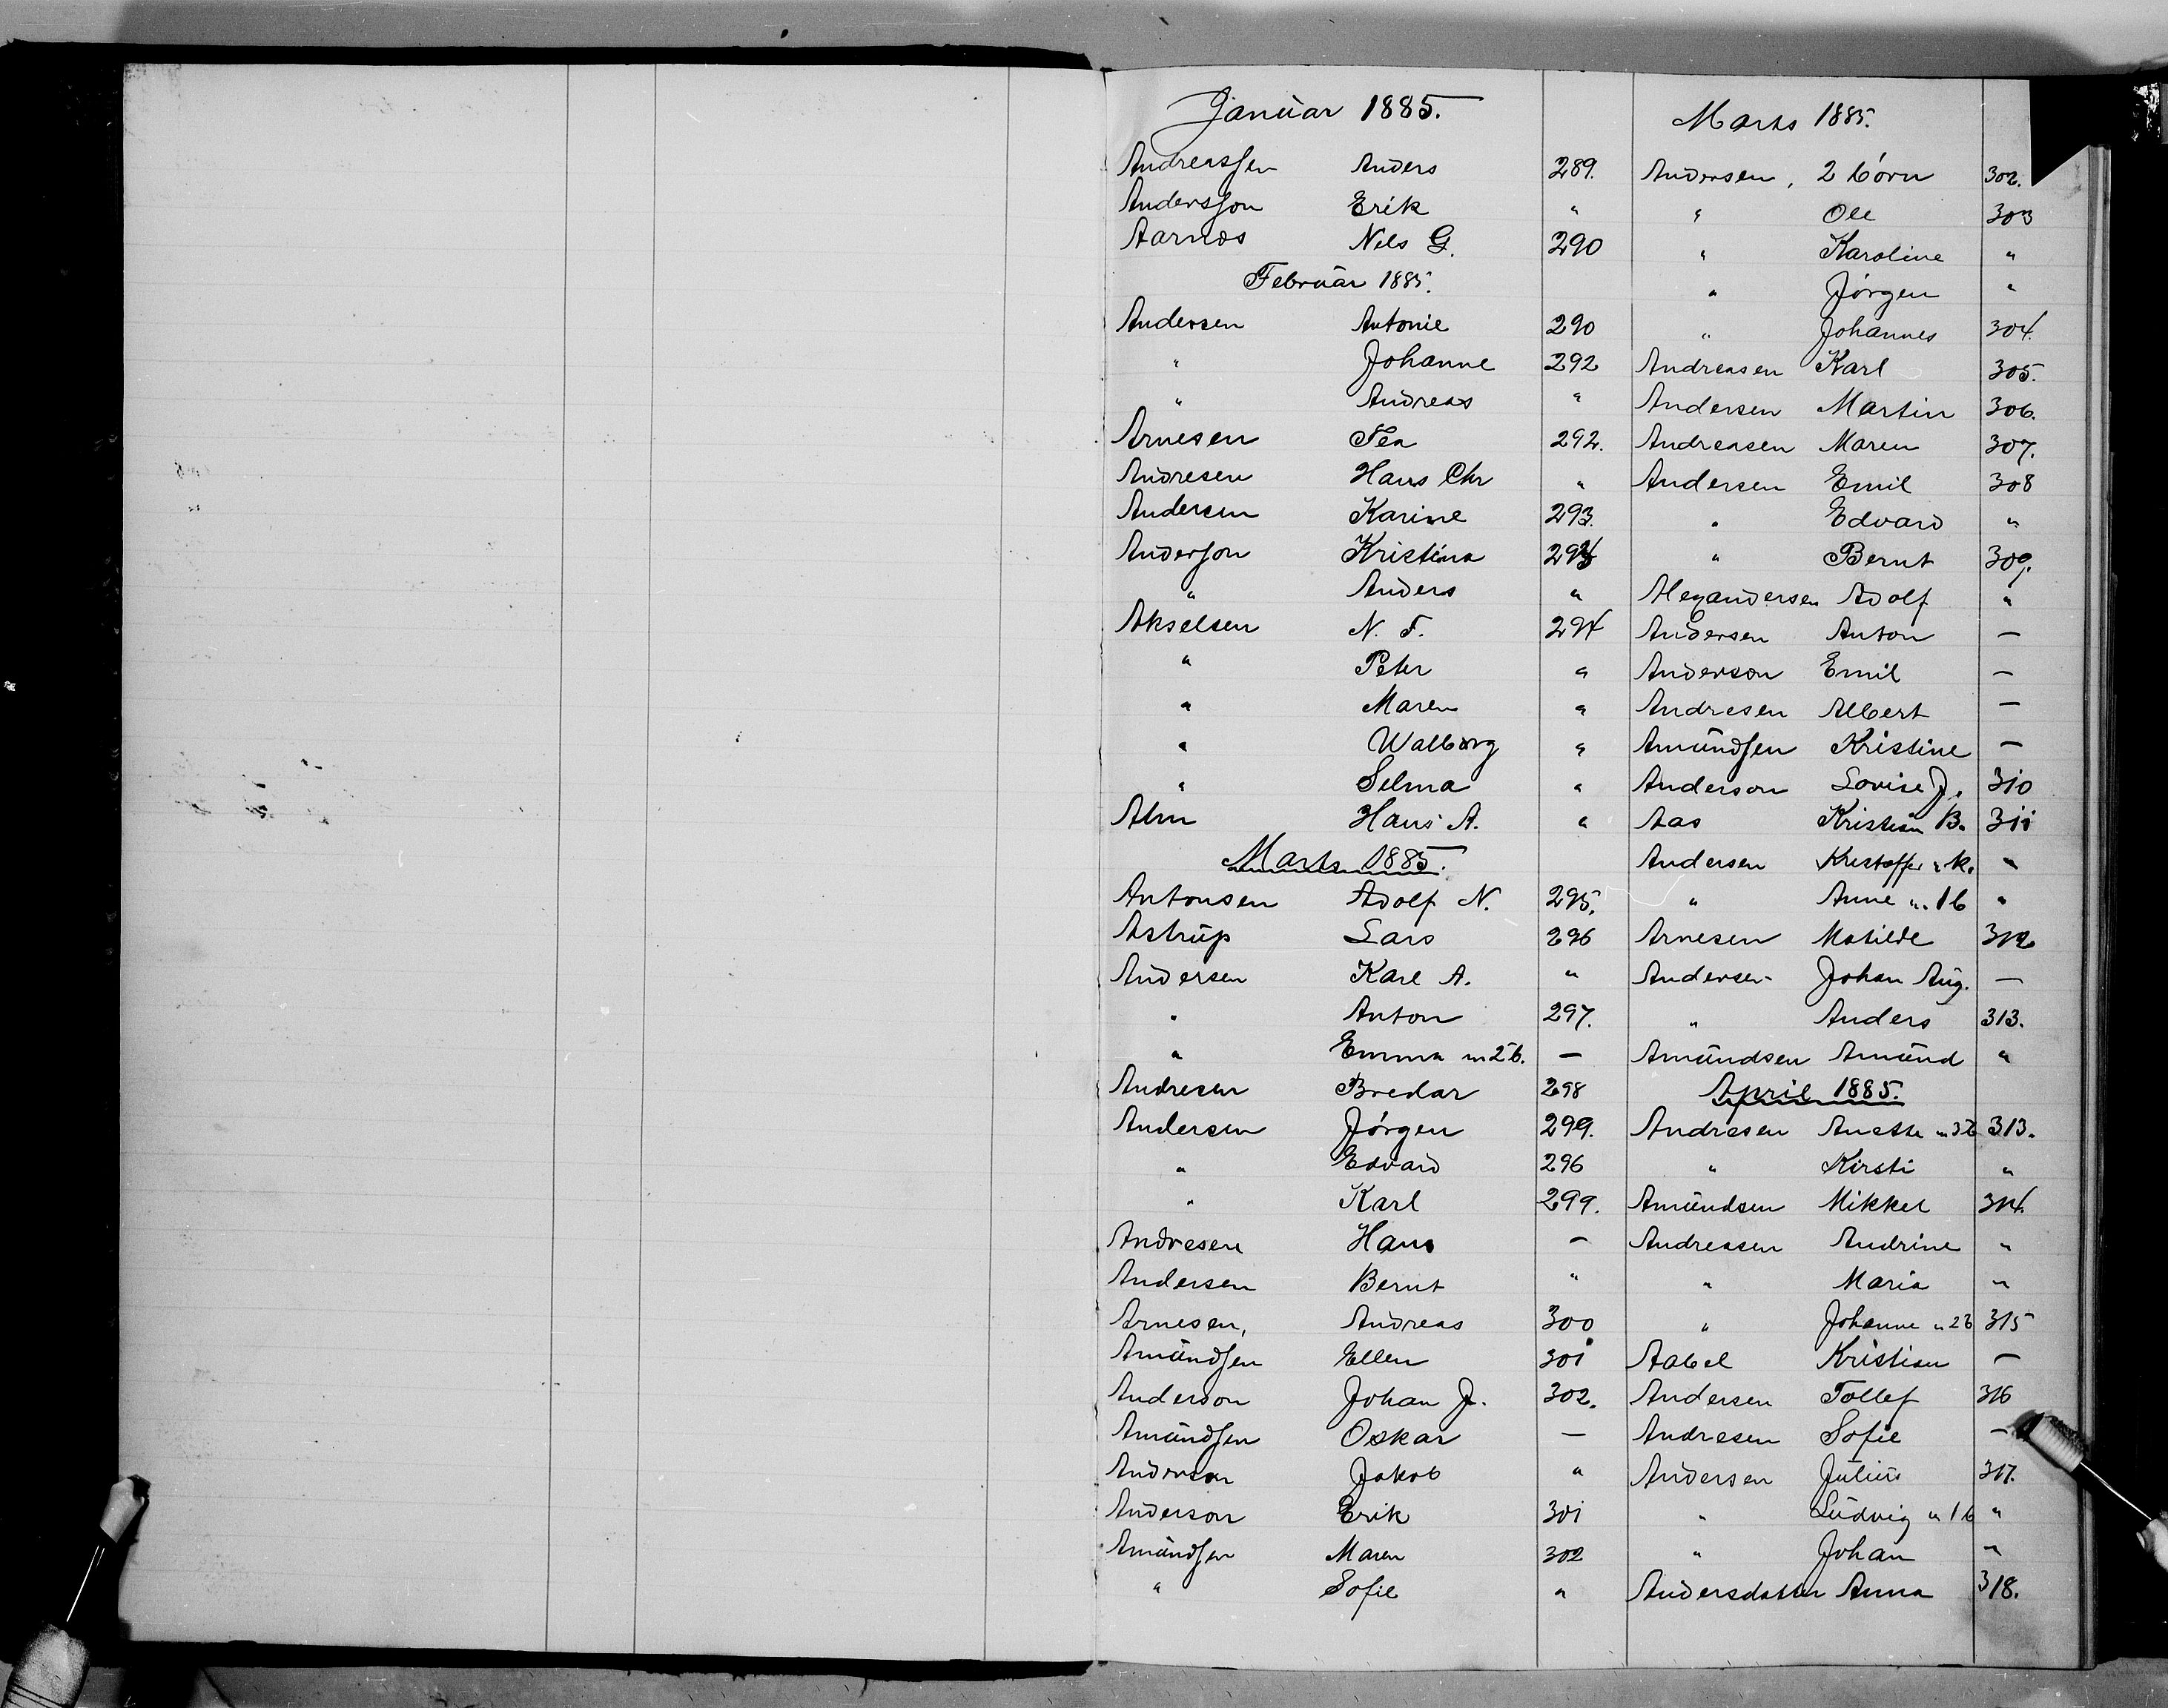 Januar 1885.
Andreassen Anders 289.
Andersson Erik "
Aarnæs Nils G. 290
Februar 1885.
Andersen Antonie 290
" Johanne 292
" Andreas "
Arnesen Tea 292.
Andresen Hans Chr "
Andersen Karine 293.
Anderson Kristina
" Anders "
Akselsen N. F. 294
" Peter "
" Maren "
" Walborg "
" Selma "
Alm Hans A. "
Marts 1885.
Antonsen Adolf N. 295.
Astrup Lars 296
Andersen Karl A. "
" Anton 297.
" Emma m 2 b. —
Andresen Bredar 298
Andersen Jörgen 299.
" Edvard 296
" Karl 299.
Andresen Hans —
Andersen Bernt "
Arnesen, Andreas 300
Amundsen Ellen 301
Anderson Johan J. 302.
Amundsen Oskar —
Anderson Jakob "
Anderson Erik 301
Amundsen Maren 302
" Sofie "
Marts 1885.
Andersen, 2 börn 302.
" Ole 303
" Karoline "
" Jörgen "
" Johannes 304.
Andreasen Karl 305.
Andersen Martin 306.
Andreasen Maren 307.
Andersen Emil 308
" Edvard "
" Bernt 309.
Alexandersen Adolf "
Andersen Anton —
Anderson Emil —
Andresen Albert —
Amundsen Kristine —
Anderson Lovise J. 310
Aas Kristian B. 311
Andersen Kristoffer " k. "
" Anne " 1 b "
Arnesen Matilde 312
Andersen Johan Aug. —
" Anders 313.
Amundsen Amund "
April 1885.
Andresen Anette m 3 b 313.
" Kirsti "
Amundsen Mikkel 314.
Andreasen Andrine "
" Maria "
" Johanne " 2 b 315
Aabel Kristian —
Andersen Tollef 316
Andresen Sofie —
Andersen Julius 317.
" Ludvig " 1 b "
" Johan "
Andersdatter Anna 318.